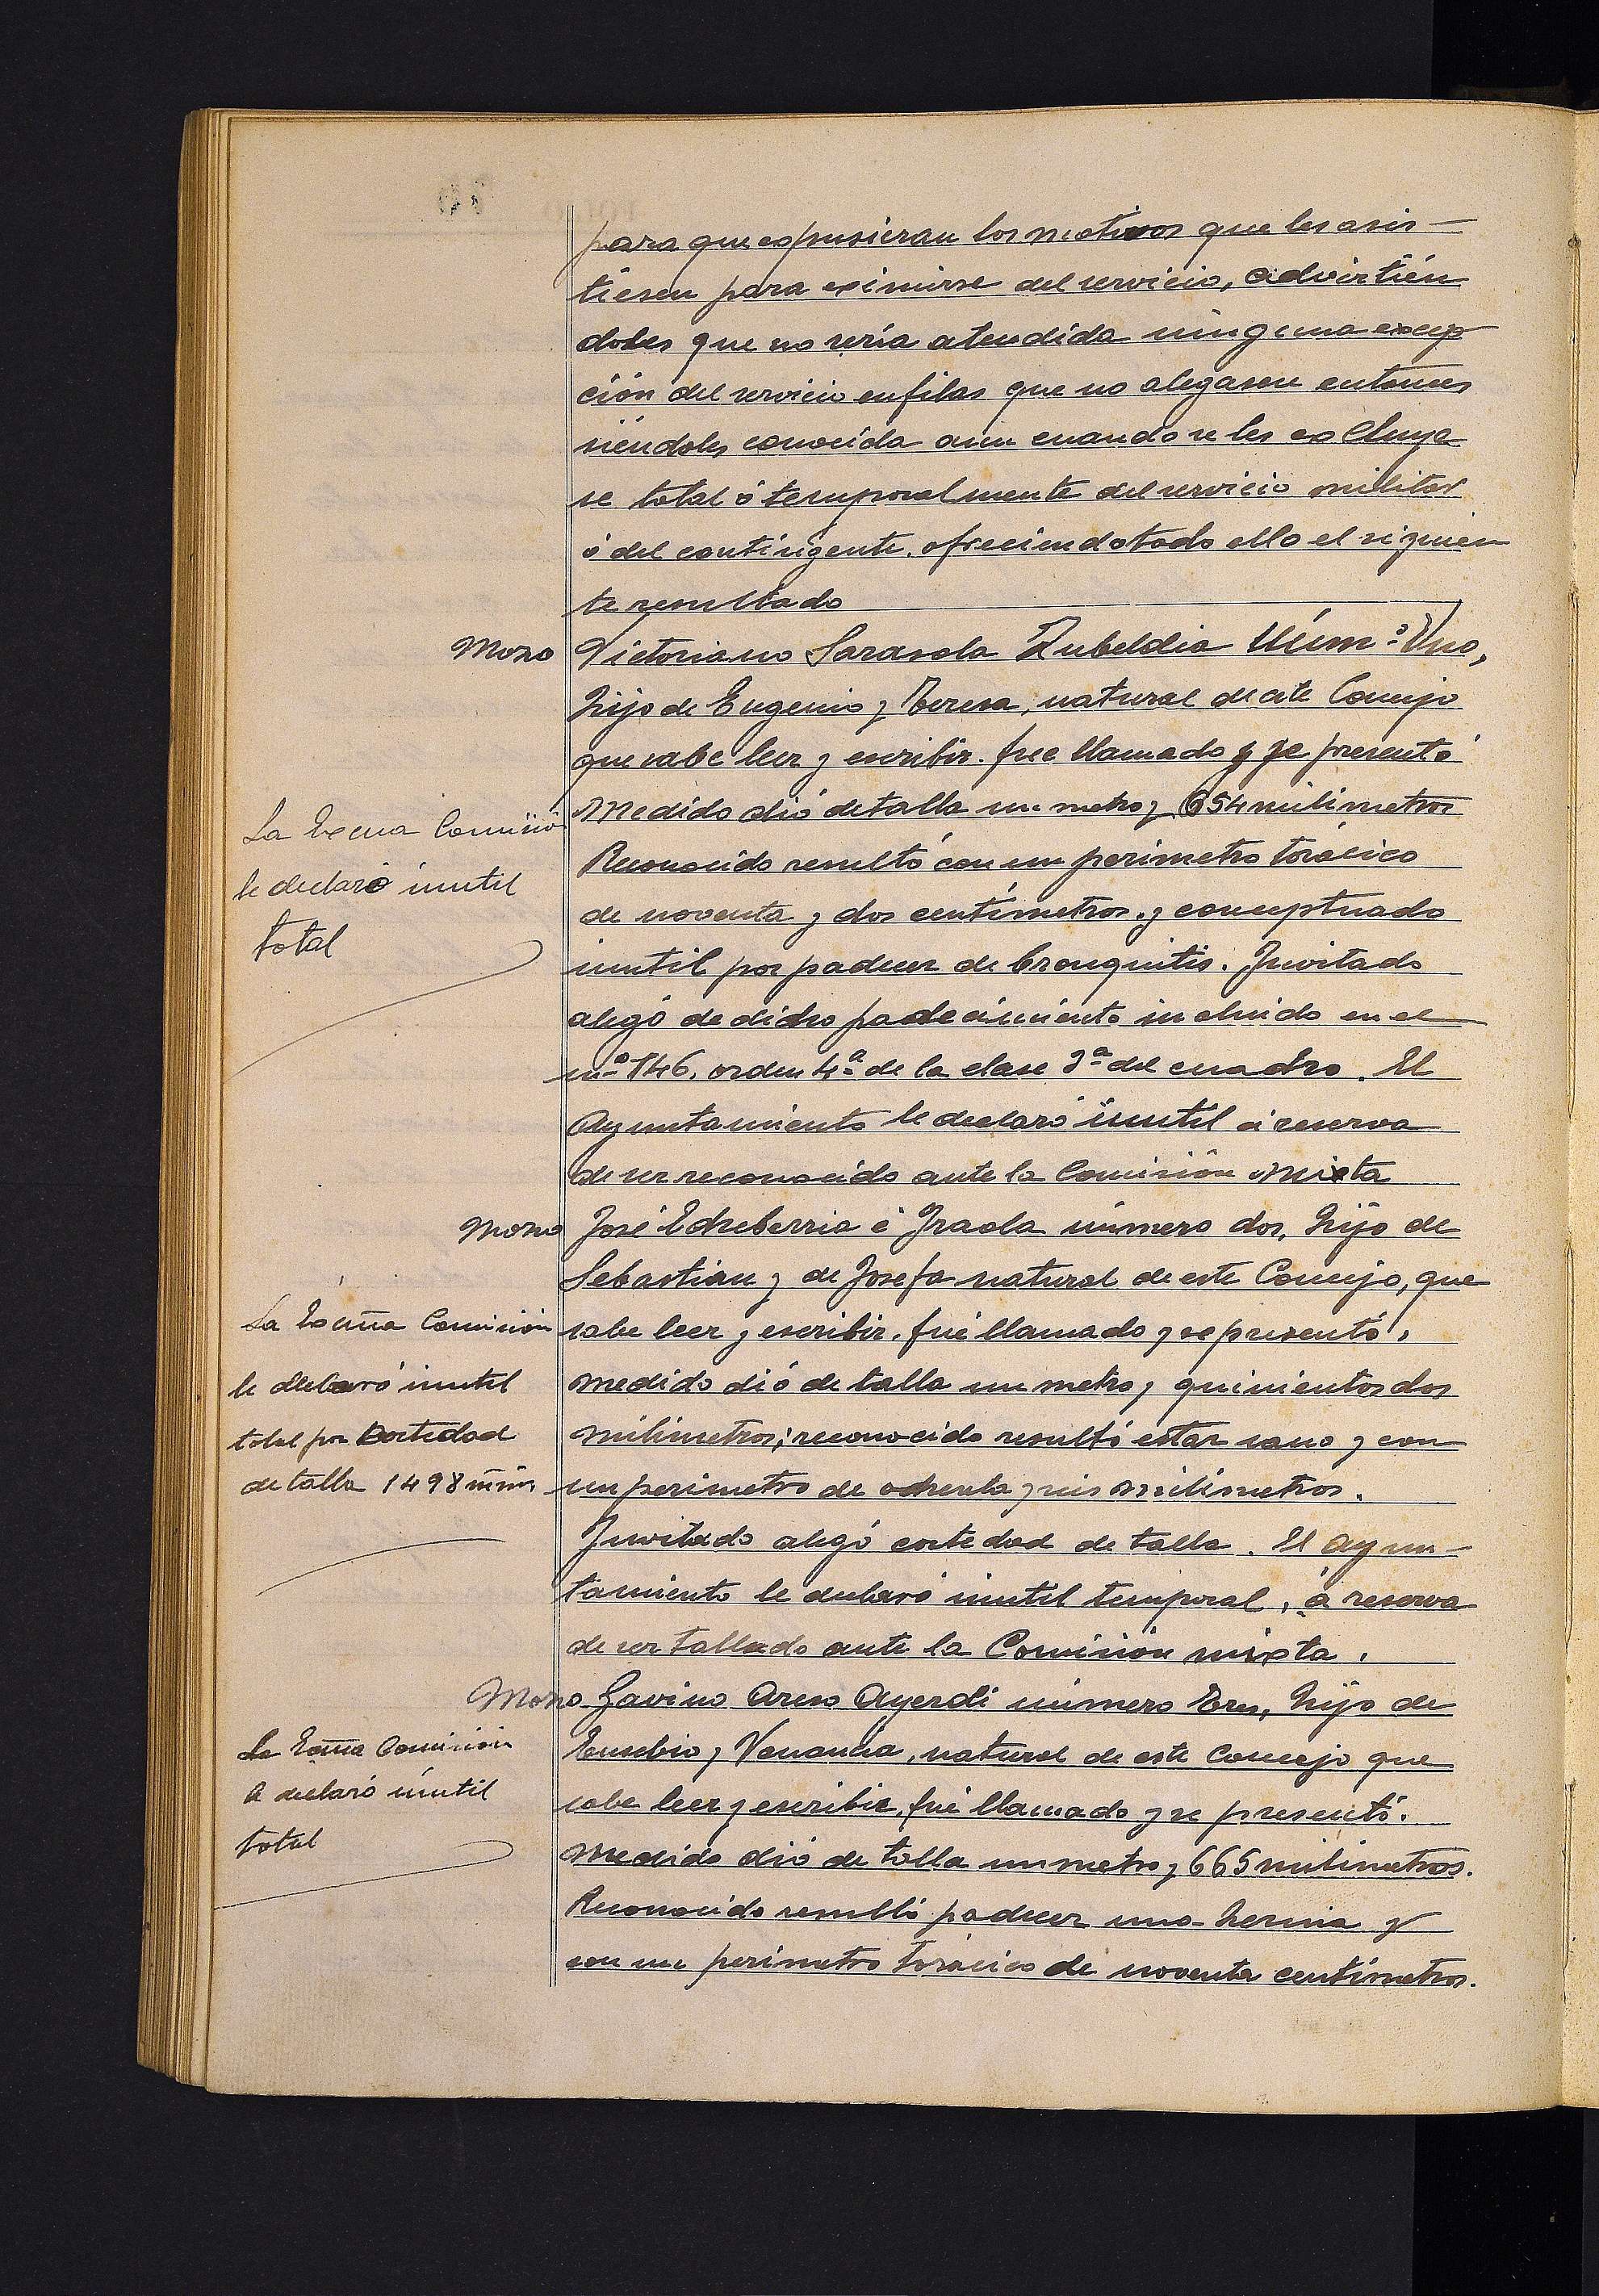 para que expusieran los motivos que les asis-
tiesen para eximirse del servicio, advirtién
doles que no sería atendida ninguna excep
ción del servicio en filas que no alegasen entonces
siéndoles conocida aun cuando se les excluya
se total ó temporalmente del servicio militar
ó del contingente, ofreciendo todo ello el siguien
te resultado
Mozo Victoriano Sarasola Zubeldia Núm.º Uno,
hijo de Eugenio y Teresa, natural de este Concejo
que sabe leer y escribir. fue llamado y se presentó
Medido dió de talla un metro y 654 milimetros
La Excma Comisión
Reconocido resultó con un perimetro torácico
le declaró inutil
de noventa y dos centímetros. y conceptuado
total
inutil por padecer de bronquitis. Invitado
alegó de dicho padecimiento incluido en el
nº 146, orden 4ª de la clase 3ª del cuadro. El
Ayuntamiento le declaró inutil á reserva
de ser reconocido ante la Comisión mixta
Mozo José Echeberria é Iraola número dos, hijo de
Sebastian y de Josefa natural de este Concejo, que
La Excma Comisión
sabe leer y escribir, fué llamado y se presentó,
le declaró inutil
medido dió de talla un metro y quinientos dos
total por Cortedad
milimetros; reconocido resultó estar sano y con
de talla 1498 m̃m̃s
un perimetro de ochenta y seis milimetros.
Invitado alegó cortedad de talla. El Ayun-
tamiento le declaró inutil temporal, á reserva
de ser tallado ante la Comisión mixta.
Mozo Gavino Areso Ayerdi número Tres, hijo de
La Excma Comisión
Eusebio y Venancia, natural de este Concejo que
le declaró inutil
sabe leer y escribir, fué llamado y se presentó.
total
Medido dió de talla un metro y 665 milimetros.
Reconocido resultó padecer una hernia y
con un perimetro torácico de noventa centímetros.